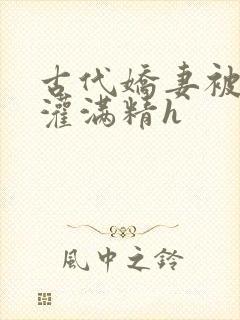 古代嬌妻被
灌满精h
風中之鈴